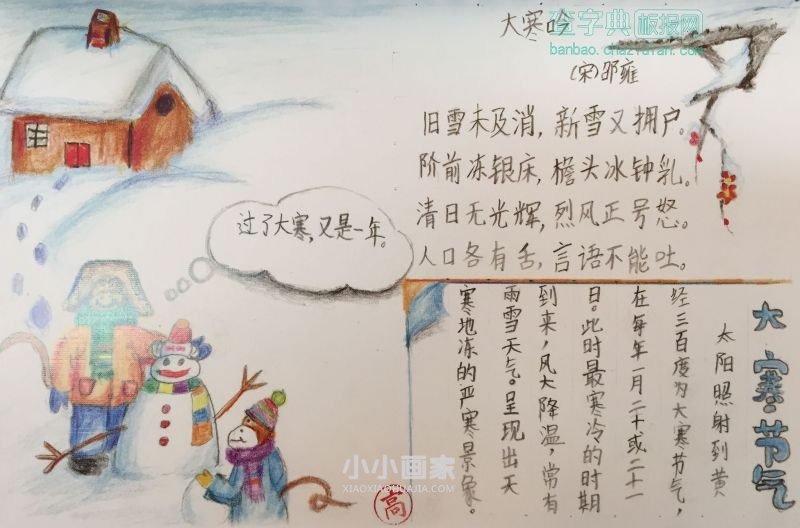 大寒吟
(宋)邵雍
旧雪未及消，新雪又拥户。
阶前冻银床，檐头冰钟乳。
清日无光辉，烈风正号怒。
人口各有舌，言语不能吐。
过了大寒，又是一年。
大寒·节气
太阳照射到黄
经三百度为大寒节气，
在每年一月二十或二十一
日。此时最寒冷的时期
到来，风大降温，常有
雨雪天气。呈现出天
寒地冻的严寒景象。
高
查字典 板报网
banbao.chazidian.com
小小画家
XIAOXIAOHUAJIA.COM